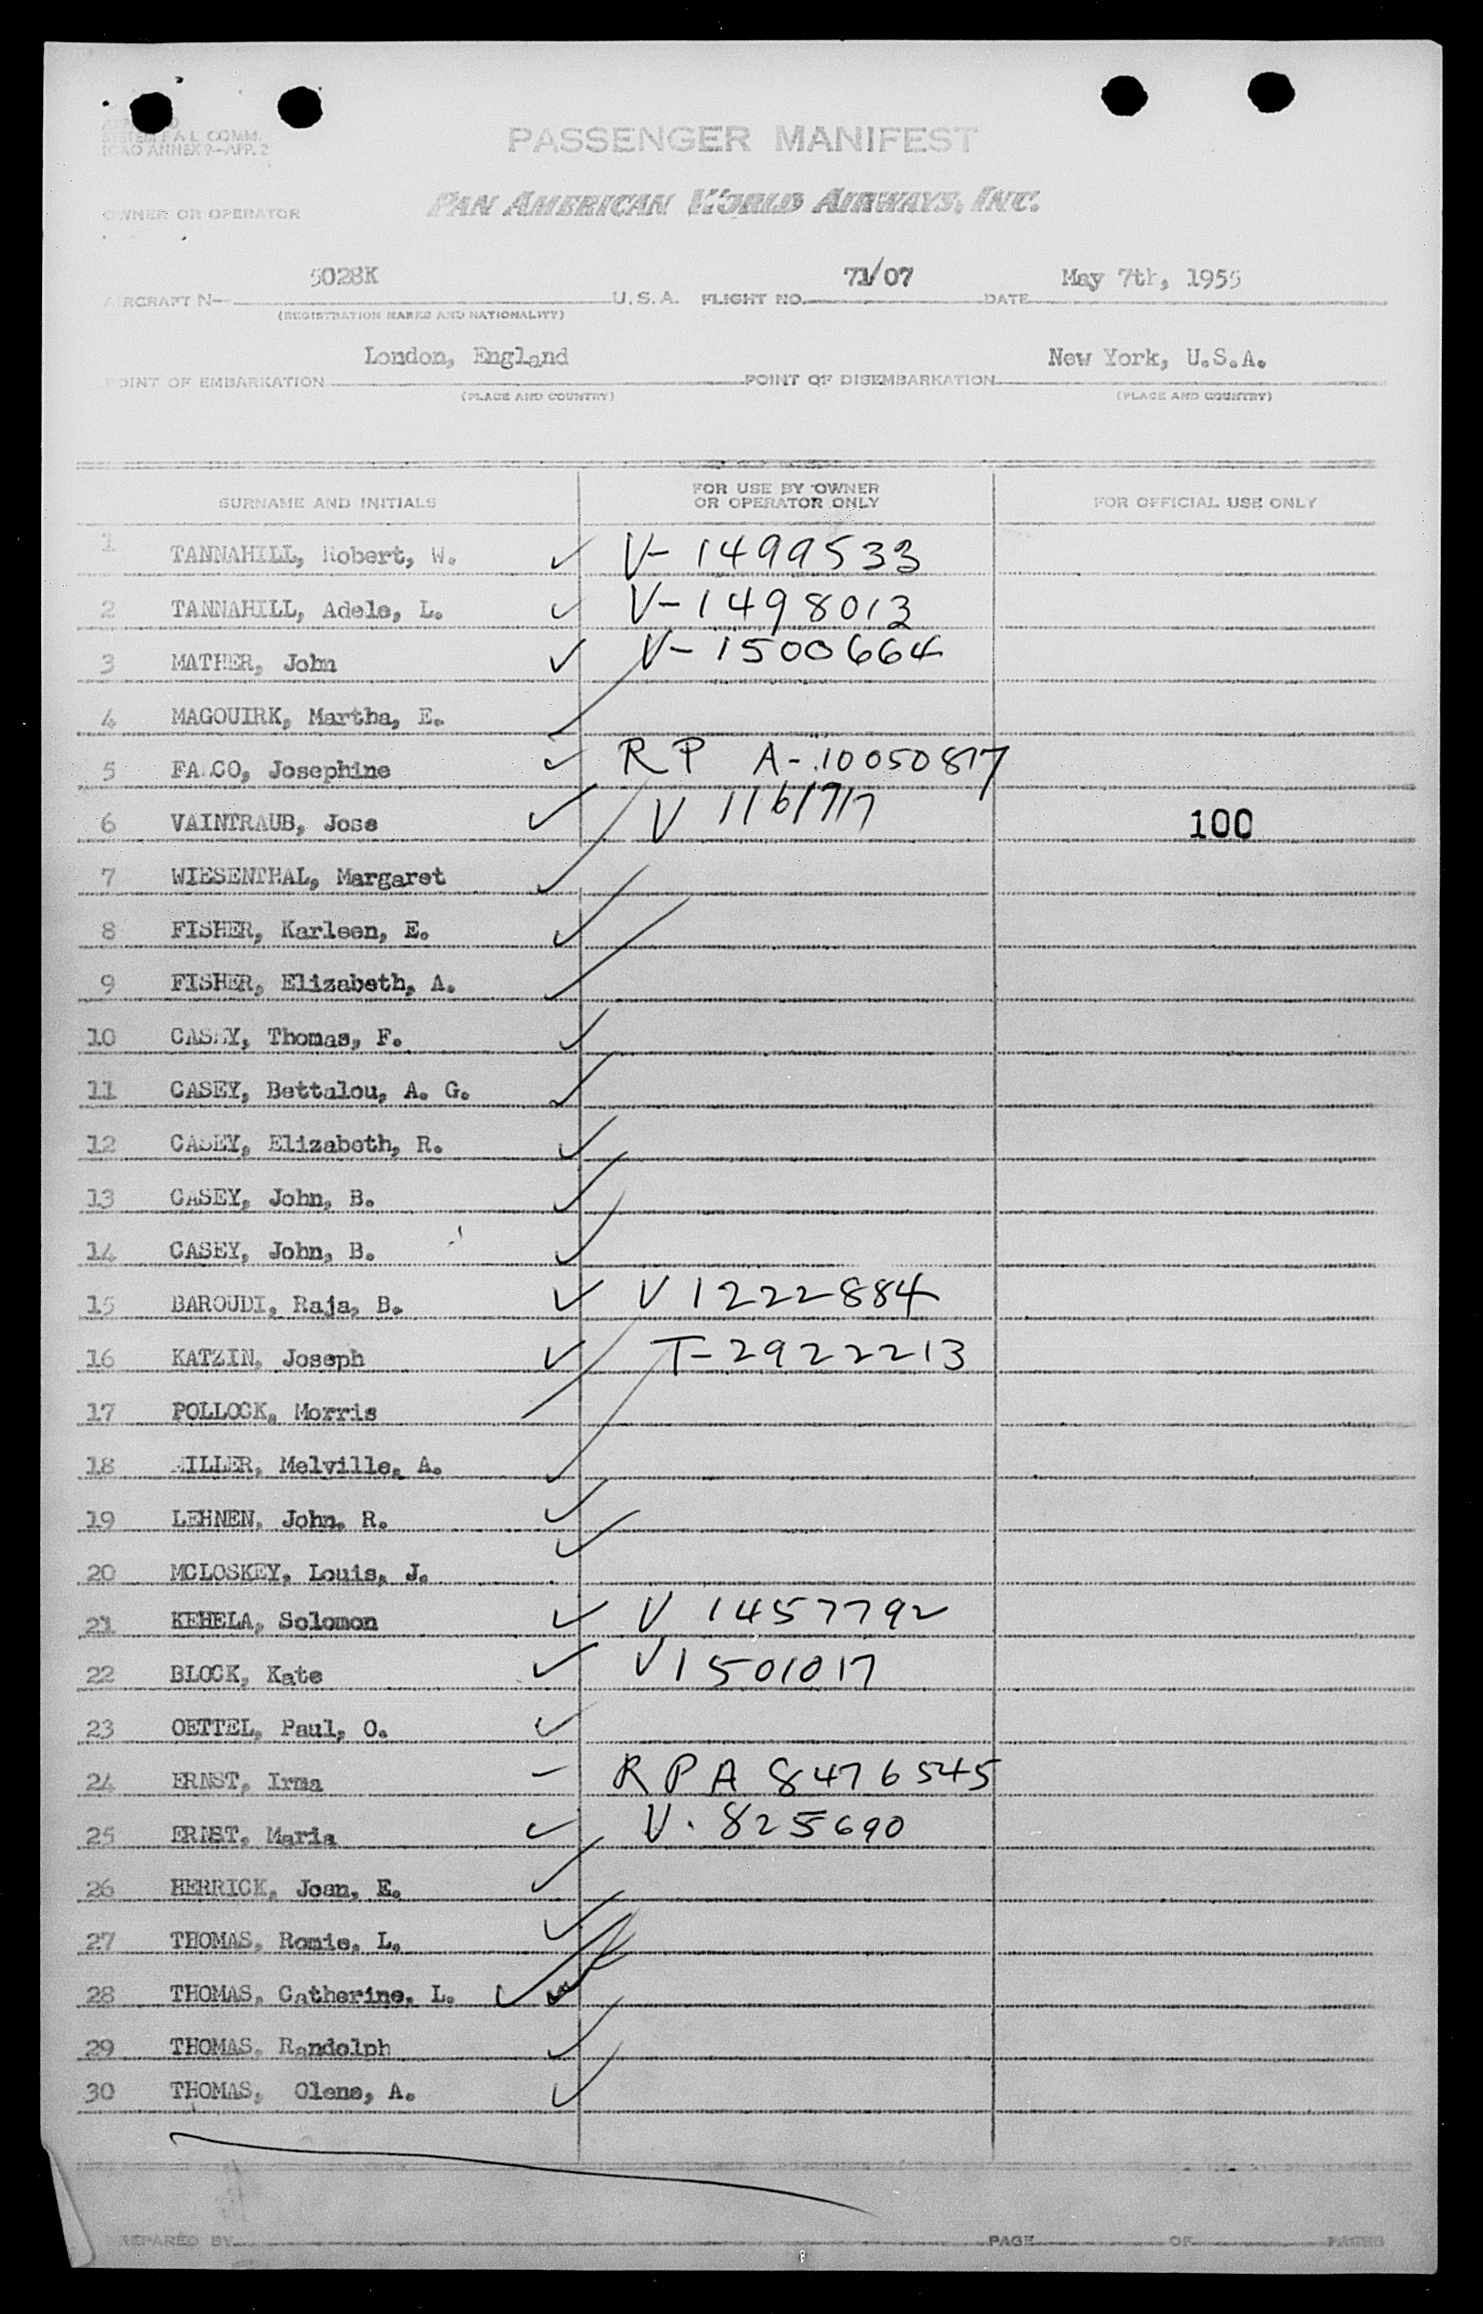 SYSTEM F.A.L. COMM.
ICAO ANNEX 9—APP. 2
PASSENGER MANIFEST
OWNER OR OPERATOR PAN AMERICAN WORLD AIRWAYS, INC.
AIRCRAFT N— 5028K U.S.A. FLIGHT NO. 71/07 DATE May 7th, 1955
(REGISTRATION MARKS AND NATIONALITY)
POINT OF EMBARKATION London, England POINT OF DISEMBARKATION New York, U.S.A.
(PLACE AND COUNTRY) (PLACE AND COUNTRY)
SURNAME AND INITIALS FOR USE BY OWNER OR OPERATOR ONLY FOR OFFICIAL USE ONLY
1 TANNAHILL, Robert, W. ✓ V-1499533
2 TANNAHILL, Adele, L. ✓ V-1498013
3 MATHER, John ✓ V-1500664
4 MAGOUIRK, Martha, E. ✓
5 FALCO, Josephine ✓ RP A-10050877
6 VAINTRAUB, Jose ✓ V 1161717 100
7 WIESENTHAL, Margaret ✓
8 FISHER, Karleen, E. ✓
9 FISHER, Elizabeth, A. ✓
10 CASEY, Thomas, F. ✓
11 CASEY, Bettalou, A. G. ✓
12 CASEY, Elizabeth, R. ✓
13 CASEY, John, B. ✓
14 CASEY, John, B. ✓
15 BAROUDI, Raja, B. ✓ V 1222884
16 KATZIN, Joseph ✓ T-2922213
17 POLLOCK, Morris
18 MILLER, Melville, A. ✓
19 LEHNEN, John, R. ✓
20 MCLOSKEY, Louis, J. ✓
21 KEHELA, Solomon ✓ V 1457792
22 BLOCK, Kate ✓ V1501017
23 OETTEL, Paul, O. ✓
24 ERNST, Irma – RPA 8476545
25 ERNST, Maria ✓ V. 825690
26 HERRICK, Joan, E. ✓
27 THOMAS, Romie, L. ✓
28 THOMAS, Catherine, L. ✓ ✓
29 THOMAS, Randolph ✓
30 THOMAS, Olene, A. ✓
PREPARED BY PAGE OF PAGES